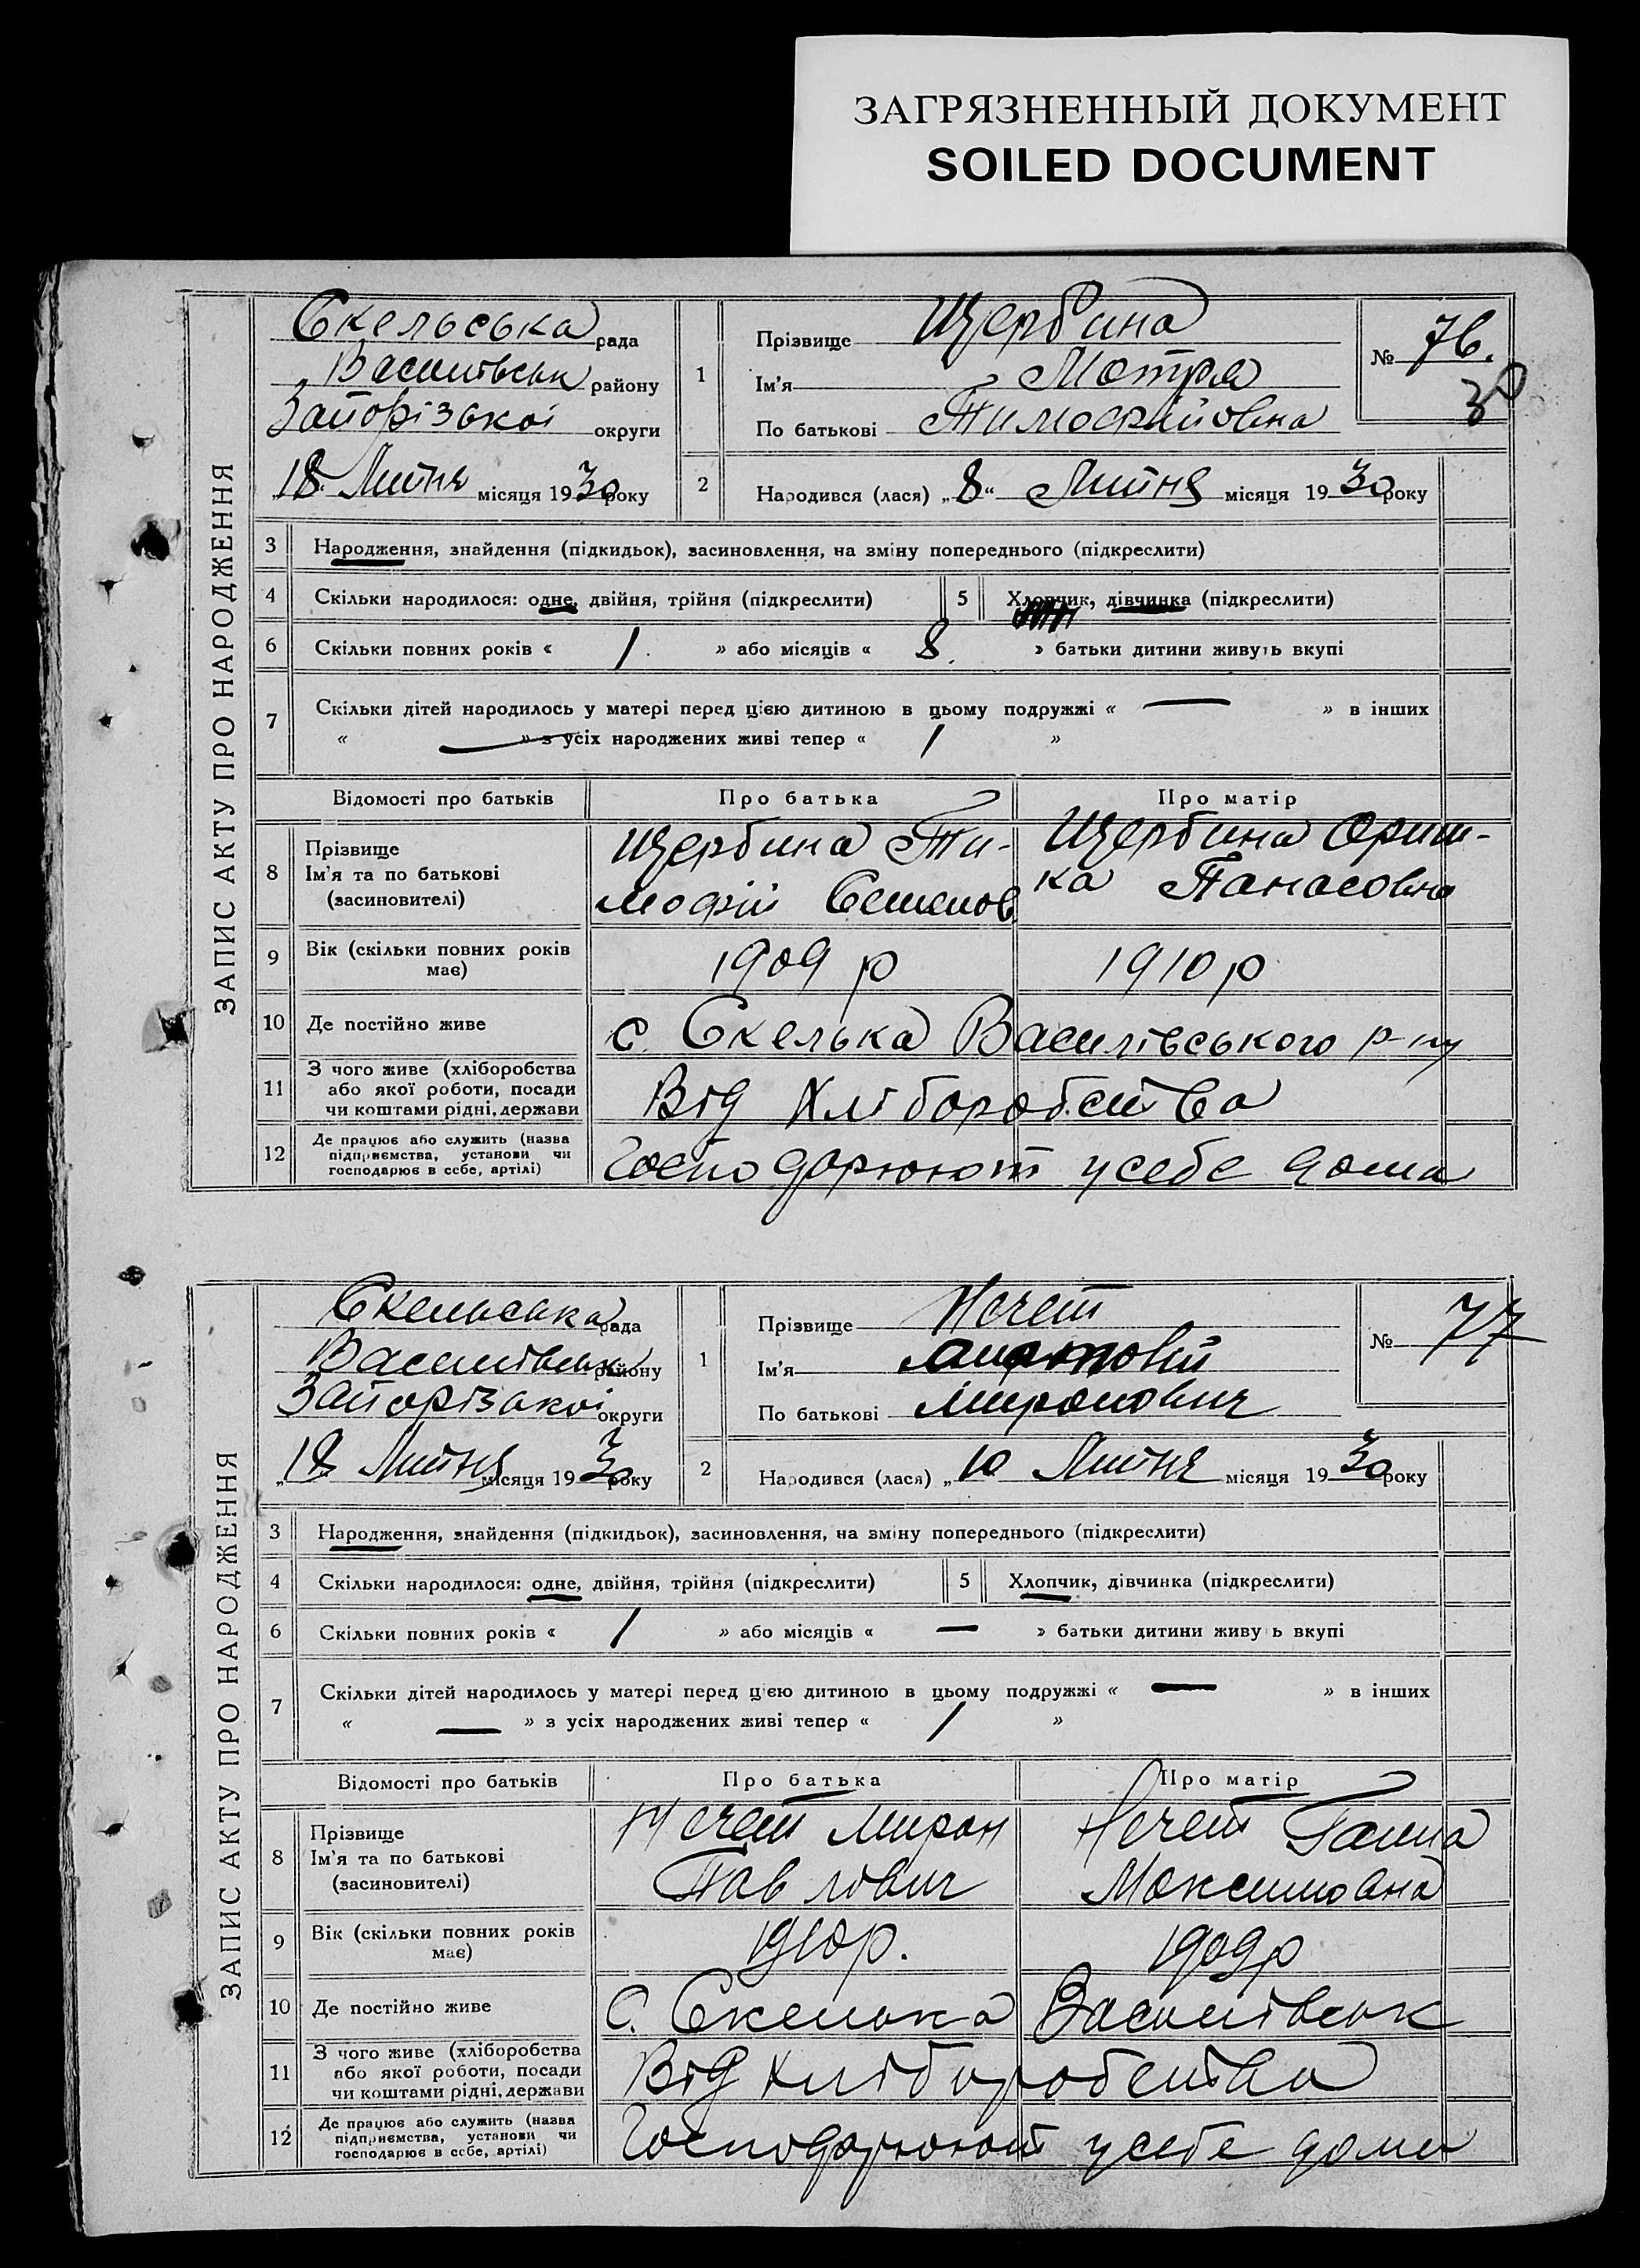 ЗАГРЯЗНЕННЫЙ ДОКУМЕНТ
SOILED DOCUMENT
ЗАПИС АКТУ ПРО НАРОДЖЕННЯ
Скельська рада
Василівськ району
Запорізької округи
18 Липня місяця 1930 року
1 Прізвище Щербина
Ім'я Мотря
По батькові Тимофійовна
№ 76.
30
2 Народився (лася) „8“ Липня місяця 1930 року
3 Народження, знайдення (підкидьок), засиновлення, на зміну попереднього (підкреслити)
4 Скільки народилося: одне, двійня, трійня (підкреслити) 5 Хлопчик, дівчинка (підкреслити)
6 Скільки повних років « 1 » або місяців « 8. » батьки дитини живуть вкупі
7 Скільки дітей народилось у матері перед цією дитиною в цьому подружжі « — » в інших
« — » з усіх народжених живі тепер « 1 »
Відомості про батьків Про батька Про матір
8 Прізвище Ім'я та по батькові (засиновителі)
Щербина Ти-
мофій Семенов
Щербина Ориш-
ка Панасовна
9 Вік (скільки повних років має) 1909 р 1910 р
10 Де постійно живе с. Скелька Василівського р-ну
11 З чого живе (хліборобства або якої роботи, посади чи коштами рідні, держави Від Хліборобства
12 Де працює або служить (назва підприємства, установи чи господарює в себе, артілі) Господорюют усебе дома
ЗАПИС АКТУ ПРО НАРОДЖЕННЯ
Скельська рада
Василівськ району
Запорізької округи
18 Липня місяця 1930 року
1 Прізвище Нечет
Ім'я
По батькові Миронович
№ 77
2 Народився (лася) „10 Липня місяця 1930 року
3 Народження, знайдення (підкидьок), засиновлення, на зміну попереднього (підкреслити)
4 Скільки народилося: одне, двійня, трійня (підкреслити) 5 Хлопчик, дівчинка (підкреслити)
6 Скільки повних років « 1 » або місяців « — » батьки дитини живу ь вкупі
7 Скільки дітей народилось у матері перед цією дитиною в цьому подружжі « — » в інших
« — » з усіх народжених живі тепер « 1 »
Відомості про батьків Про батька Про матір
8 Прізвище Ім'я та по батькові (засиновителі)
Нечет Мирон
Павлович
Нечет Ганна
Максимовна
9 Вік (скільки повних років має) 1910р. 1909р
10 Де постійно живе С. Скелька Василівськ
11 З чого живе (хліборобства або якої роботи, посади чи коштами рідні, держави Від Хліборобства
12 Де працює або служить (назва підприємства, установи чи господарює в себе, артілі) Господорюют усебе дома